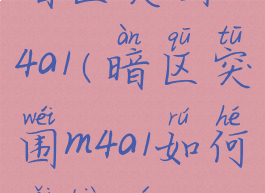 àn qū tū
4a1(暗区突
wéi rú hé
围m4a1如何